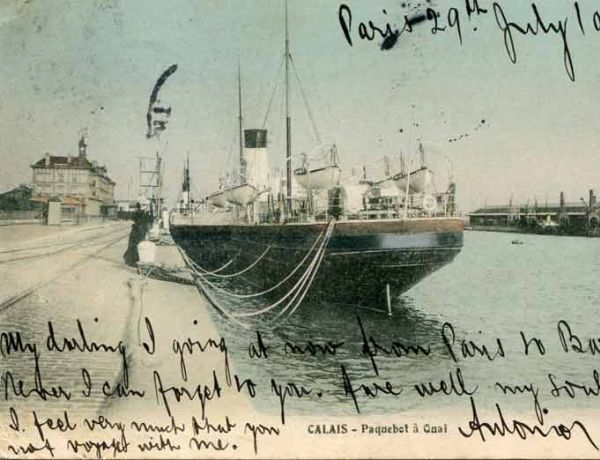 Paris 29th July 19
My darling I going at now from Paris to Ba
Never I can forget to you. Fare well my soul
I feel very much that you
not voyage with me.
CALAIS - Paquebot à Quai
Antonio